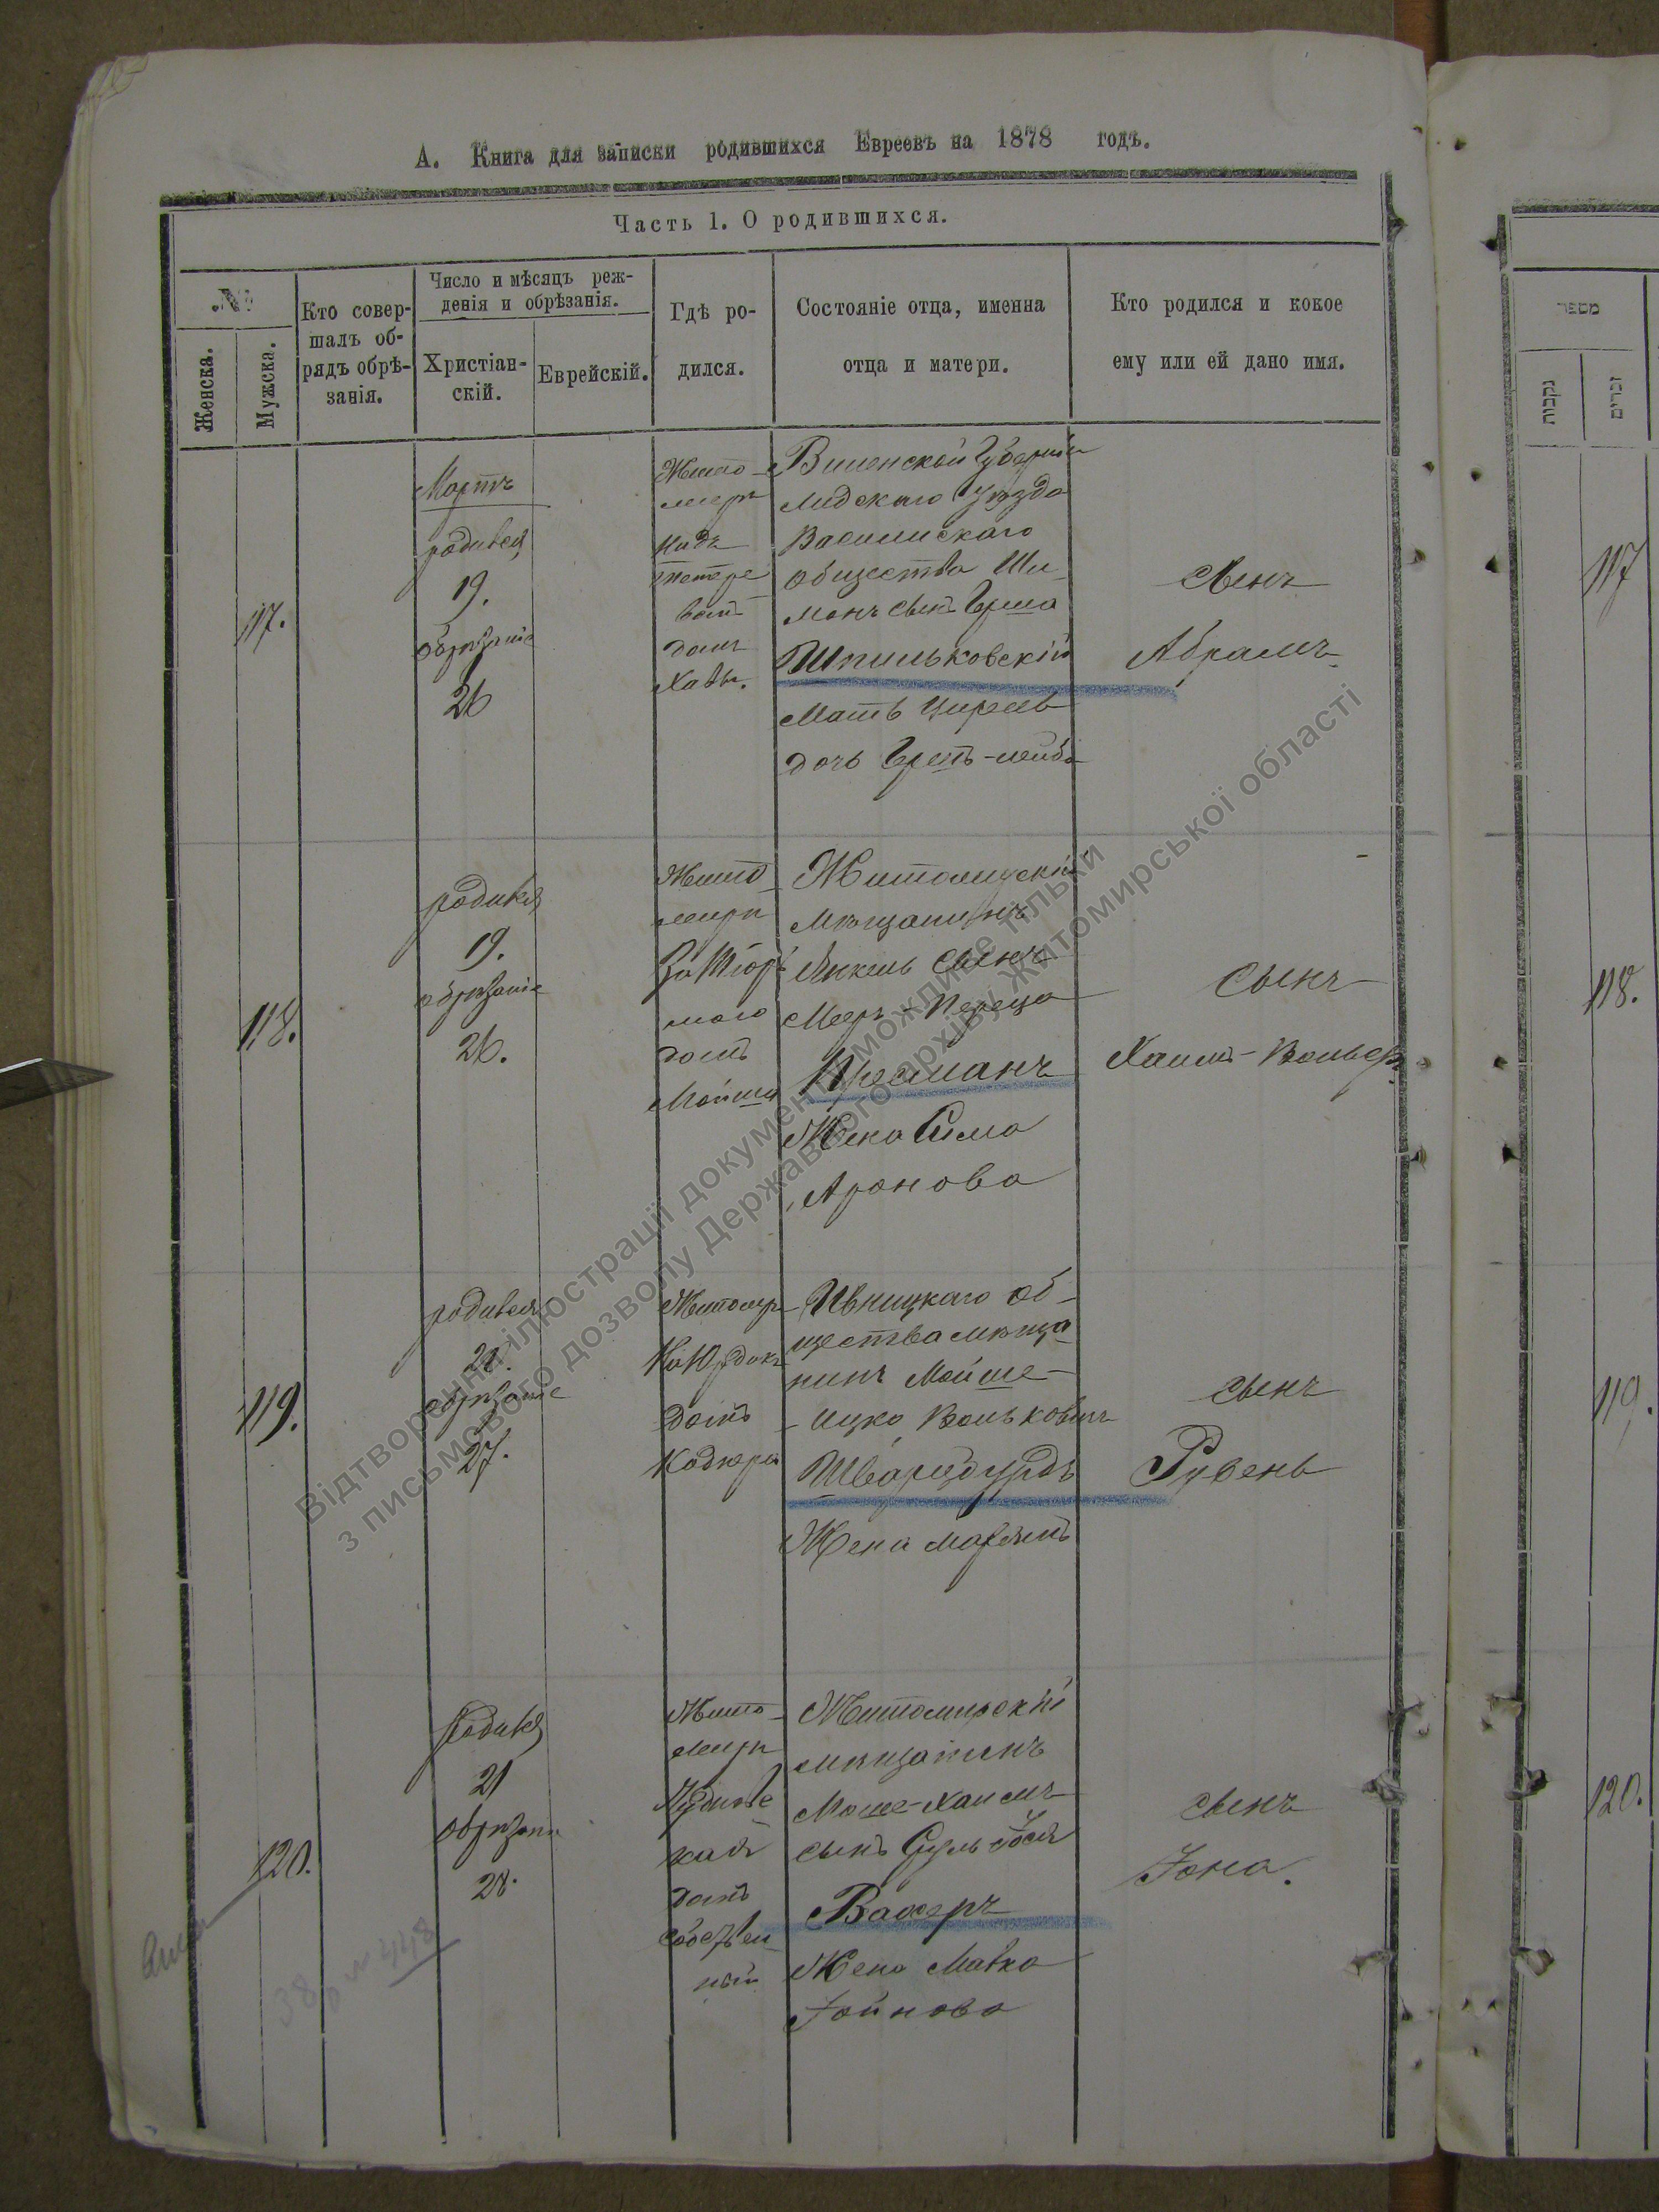 А. Книга для записки родившихся Евреевъ на 1878 годъ.
Часть 1. О родившихся.
№
Женска.
Мужска.
Кто совер-
шалъ об-
рядъ обрѣ-
занія.
Число и мѣсяцъ реж-
денія и обрѣзанія.
Христіан-
скій.
Еврейскій.
Гдѣ ро-
дился.
Состояніе отца, именна
отца и матери.
Кто родился и кокое
ему или ей дано имя.
117.
Мартъ
родился
19.
обрѣзаніе
26
Жито-
миръ
надъ
домъ
Хавы.
Виленской Губерніи
Лидскаго Уѣзда
Василишскаго
общества Ши-
монъ сынъ Герша
Шпильковскій
Мать Цирель
дочь Герш-лейба
сынъ
Абрамъ
118.
родился
19.
обрѣзаніе
26.
Жито-
миръ
домъ
Мойши
Житомирскій
мѣщанинъ
Янкель сынъ
Мееръ-Переца
Пресманъ
Жена Сима
Аронова
сынъ
Хаимъ-Вольфъ
119.
родился
обрѣзаніе
27.
Житомиръ
домъ
Ивницкаго об-
щества мѣща-
нинъ Мойше-
Ицко Вольковичъ
Шварцбурдъ
Жена Марьямъ
сынъ
Рувень
120.
родился
21
обрѣзаніе
28.
Жито-
миръ
домъ
собствен-
ный
Житомирскій
мѣщанинъ
Моше-Хаимъ
сынъ Сруль Іося
Васеръ
Жена Малка
Іойнова
сынъ
Іона.
מספר
נקבות
זכרים
117
118.
119.
120.
Відтворення ілюстрації документу можливе тільки
з письмового дозволу Державного архіву Житомирської області